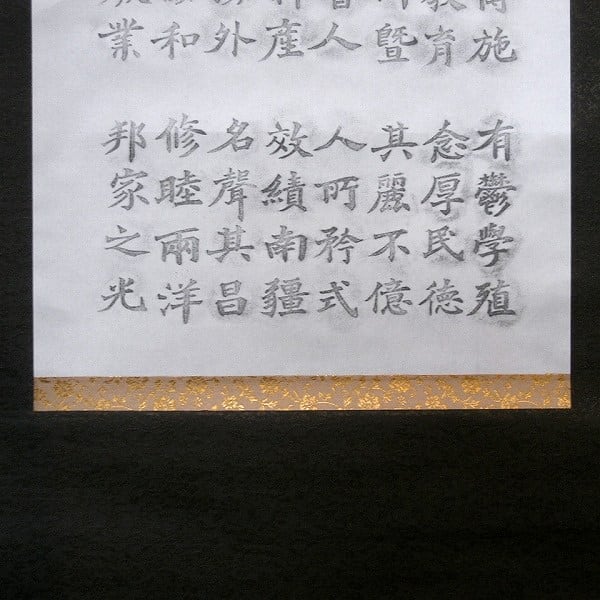 施 有鬱學殖
教育 念厚民徳
曁 其麗不億
人 人所矜式
産 效績南疆
外 名聲其昌
和 修睦兩洋
業 邦家之光